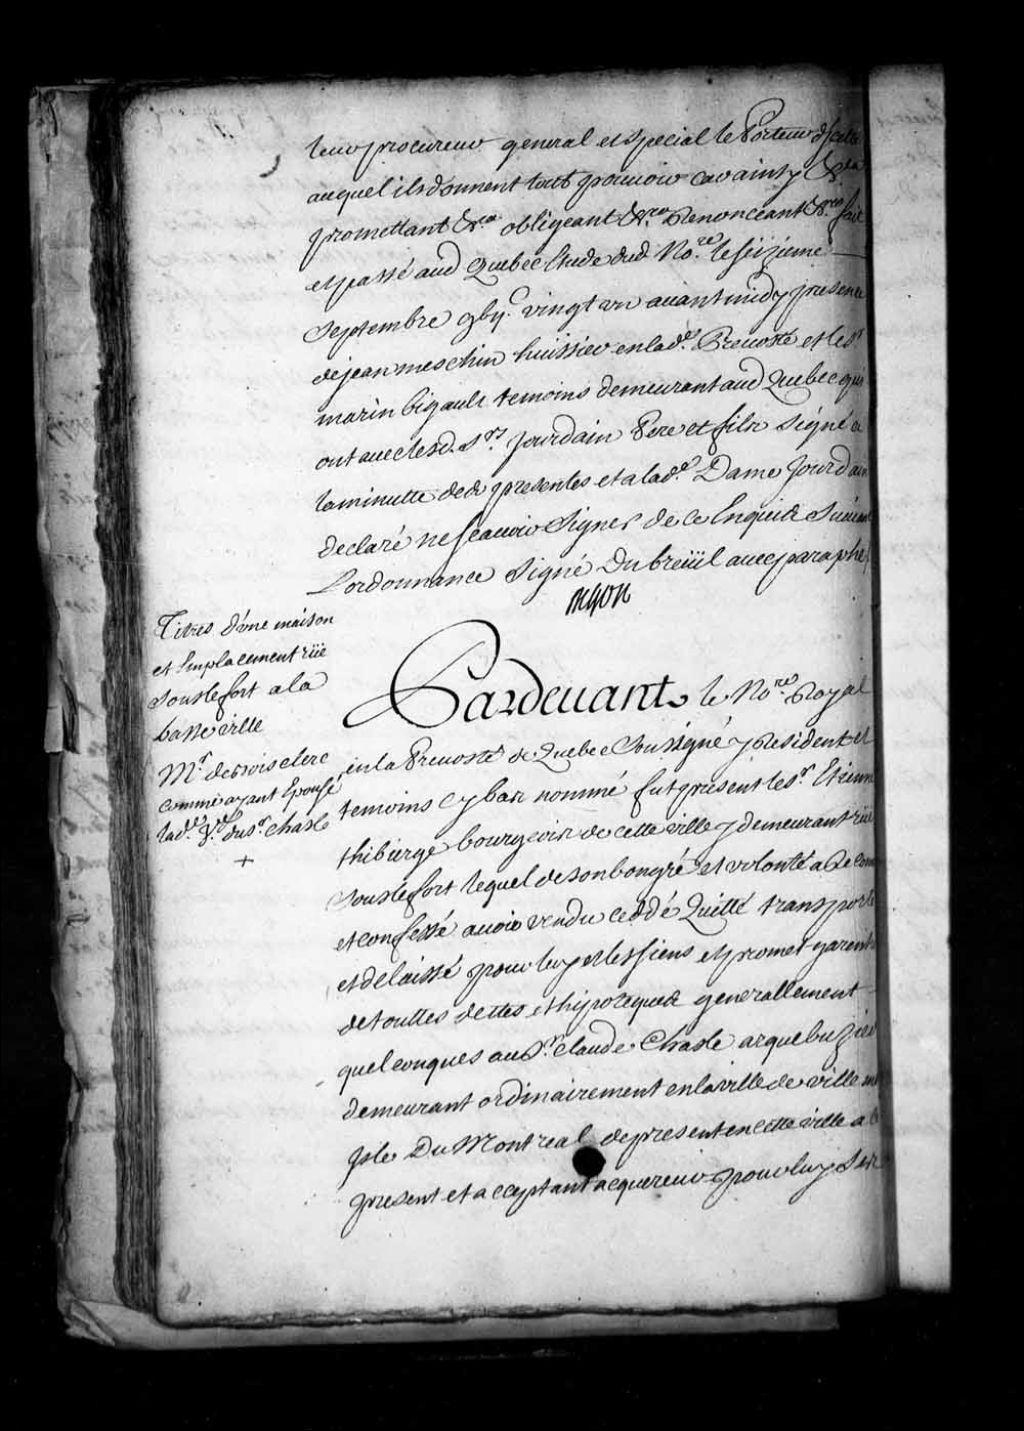 leur procureur general et special le Porteur d'icelle
auquel ils donnent tout pouvoir ca vainsy &ca
promettant &ca obligeant &ca Renonceant &ca fait
et passé aud Quebec Etude dud No.re le seizieme
septembre gbij.c vingt un avant midy presence
de jean meschin huissier en lad.e Prevosté et les.r
marin bigault temoins demeurant aud Quebec qui
ont avec lesd. S.rs Jourdain Pere et fils Signé a
la minutte des presentes et a lad.e Dame Jourdain
declaré ne scavoir Signer de ce Enquise Suivant
L'ordonnance Signé Dubreüil avec paraphe,
Titres d'une maison
et Emplacement rüe
Sous le fort a la
basse ville
M.r deboisclerc
comme ayant Epousé
lad.e v.ve du s.r Chasle
+
Pardevant le No.re Royal
en la Prevosté de Quebec Soussigné y Resident et
temoins cy bas nommé fut present le s.r Etienne
thibierge bourgeois de cette ville y demeurant rüe
Sous le fort lequel de son bon gré et volonté a Reconu
et confessé avoir vendu ceddé Quitté transporté
et delaissé pour luy et les siens et promet garentir
de touttes dettes et hipoteques generallement
quelconques au S.r Claude Chasle arquebuzier
demeurant ordinairement en la ville de ville m
Isle Du Montreal de present en cette ville a ce
present et acceptant acquereur pour luy Ses